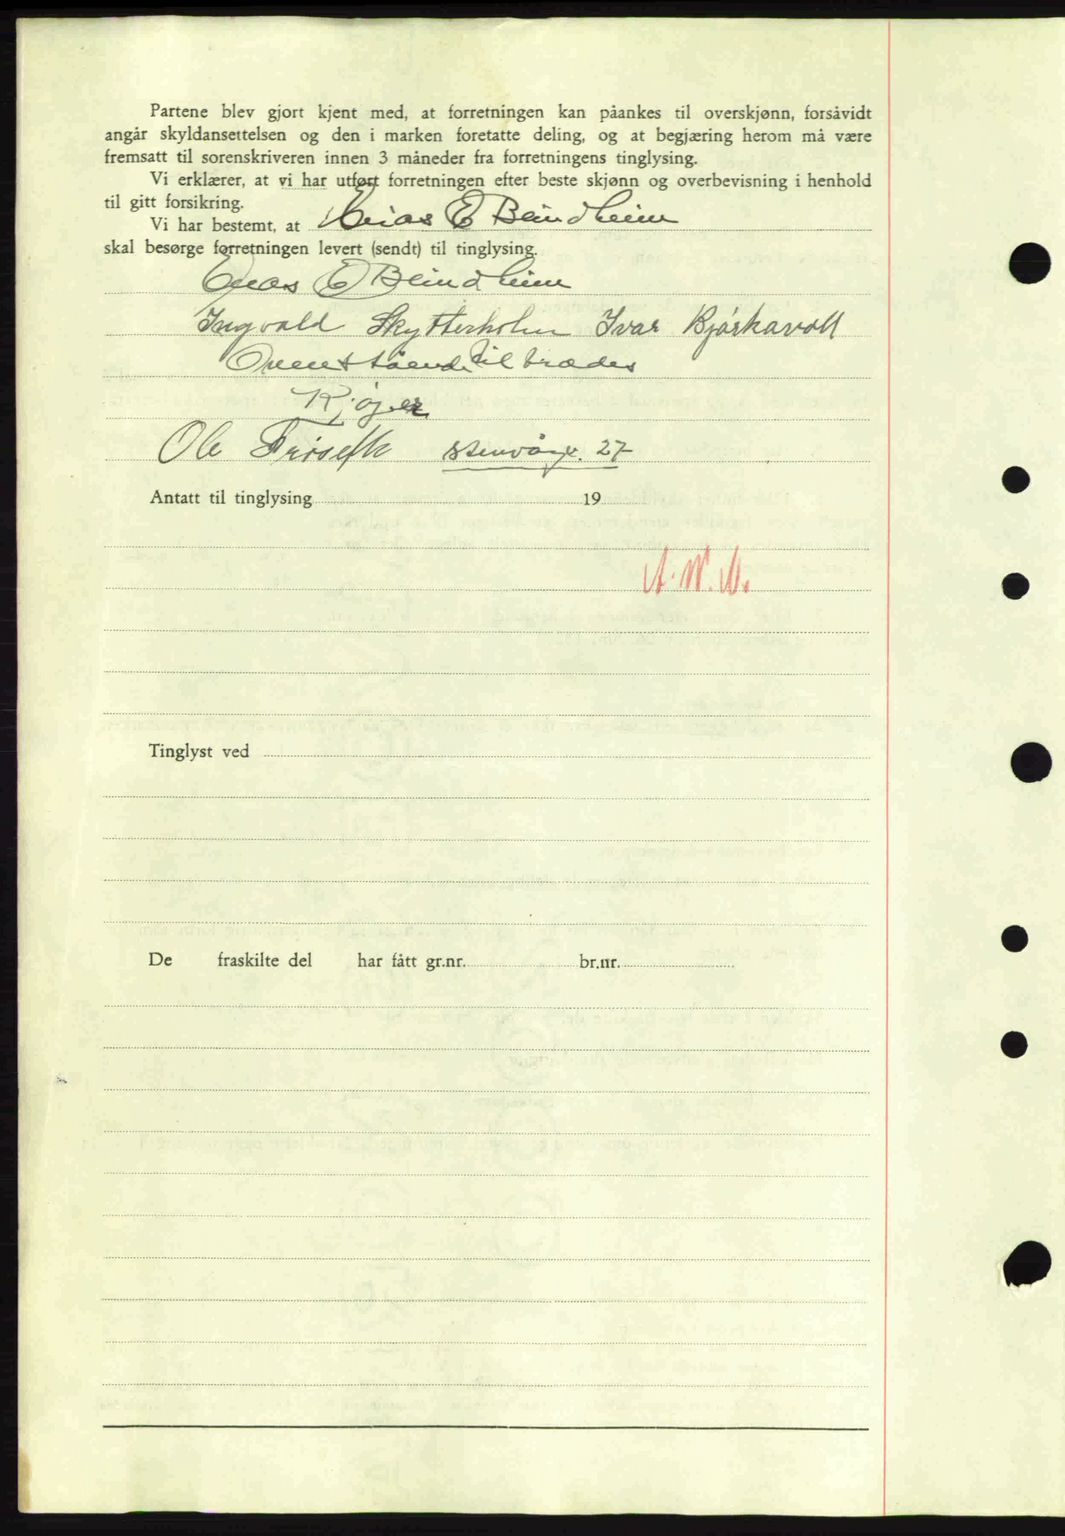 Partene blev gjort kjent med, at forretningen kan påankes til overskjønn, forsåvidt
angår skyldansettelsen og den i marken foretatte deling, og at begjæring herom må være
fremsatt til sorenskriveren innen 3 måneder fra forretningens tinglysing.
Vi erklærer, at vi har utført forretningen efter beste skjønn og overbevisning i henhold
til gitt forsikring.
Vi har bestemt, at E Beindheim
skal besørge forretningen levert (sendt) til tinglysing.
E Beindheim
Ingvald Skytterholm Ivar Bjørkavoll
Ovenstående tiltrædes
Kjøper
Ole 27
Antatt til tinglysing 19
A. W. M.
Tinglyst ved
De fraskilte del har fått gr.nr. br.nr.